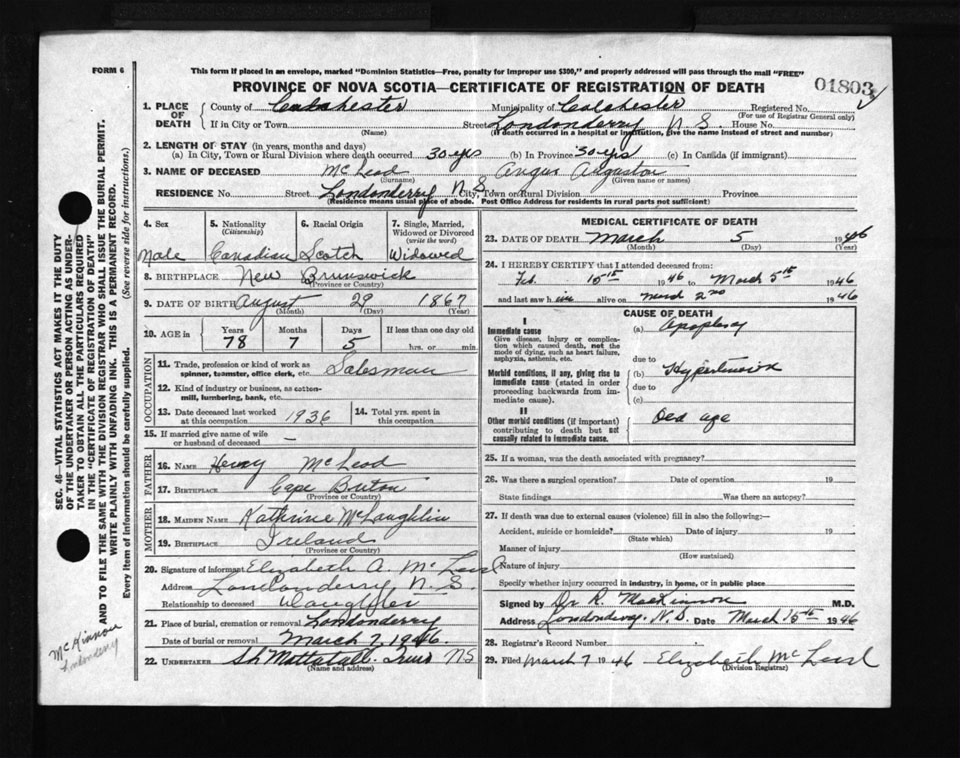 FORM 6
This form if placed in an envelope, marked "Dominion Statistics—Free, penalty for improper use $300," and properly addressed will pass through the mail "FREE"
PROVINCE OF NOVA SCOTIA—CERTIFICATE OF REGISTRATION OF DEATH
01803
1. PLACE OF DEATH
County of Colchester Municipality of Colchester Registered No.
(For use of Registrar General only)
If in City or Town Street Londonderry N S. House No.
(Name) (If death occurred in a hospital or institution, give the name instead of street and number)
2. LENGTH OF STAY (in years, months and days)
(a) In City, Town or Rural Division where death occurred 30 yrs (b) In Province 30 yrs (c) In Canada (if immigrant)
3. NAME OF DECEASED McLeod Angus
(Surname) (Given name or names)
RESIDENCE No. Street Londonderry N S. City, Town or Rural Division Province
(Residence means usual place of abode. Post Office Address for residents in rural parts not sufficient)
4. Sex 5. Nationality (Citizenship) 6. Racial Origin 7. Single, Married, Widowed or Divorced (write the word)
Male Canadian Scotch Widowed
8. BIRTHPLACE New Brunswick
(Province or Country)
9. DATE OF BIRTH August 29 1867
(Month) (Day) (Year)
10. AGE in Years Months Days If less than one day old
78 7 5 hrs. or min.
OCCUPATION
11. Trade, profession or kind of work as spinner, teamster, office clerk, etc. Salesman
12. Kind of industry or business, as cotton-mill, lumbering, bank, etc.
13. Date deceased last worked at this occupation 1936 14. Total yrs. spent in this occupation
15. If married give name of wife or husband of deceased —
FATHER
16. NAME Henry McLeod
17. BIRTHPLACE Cape Breton
(Province or Country)
MOTHER
18. MAIDEN NAME Katherine McLaughlin
19. BIRTHPLACE Ireland
(Province or Country)
20. Signature of informant Elizabeth A. McLeod
Address Londonderry N. S.
Relationship to deceased Daughter
21. Place of burial, cremation or removal Londonderry
Date of burial or removal March 7, 1946.
22. UNDERTAKER Mattatall. Truro NS
(Name and address)
MEDICAL CERTIFICATE OF DEATH
23. DATE OF DEATH March 5 1946
(Month) (Day) (Year)
24. I HEREBY CERTIFY that I attended deceased from:
Feb. 15th 1946 to March 5th 1946
and last saw h im alive on March 2nd 1946
CAUSE OF DEATH
I
Immediate cause
Give disease, injury or complication which caused death, not the mode of dying, such as heart failure, asphyxia, asthenia, etc.
(a) Apoplexy
due to
Morbid conditions, if any, giving rise to immediate cause (stated in order proceeding backwards from immediate cause).
(b) Hypertension
due to
(c)
II
Other morbid conditions (if important) contributing to death but not causally related to immediate cause.
Old age
25. If a woman, was the death associated with pregnancy?
26. Was there a surgical operation? Date of operation 19
State findings Was there an autopsy?
27. If death was due to external causes (violence) fill in also the following:—
Accident, suicide or homicide? Date of injury 19
(State which)
Manner of injury
(How sustained)
Nature of injury
Specify whether injury occurred in industry, in home, or in public place
Signed by Dr R. MacKinnon M.D.
Address Londonderry. N.S. Date March 5th 1946
28. Registrar's Record Number
29. Filed March 7 1946 Elizabeth McLeod
(Division Registrar)
SEC. 46—VITAL STATISTICS ACT MAKES IT THE DUTY
OF THE UNDERTAKER OR PERSON ACTING AS UNDERTAKER TO OBTAIN ALL THE PARTICULARS REQUIRED
IN THE "CERTIFICATE OF REGISTRATION OF DEATH"
AND TO FILE THE SAME WITH THE DIVISION REGISTRAR WHO SHALL ISSUE THE BURIAL PERMIT.
WRITE PLAINLY WITH UNFADING INK. THIS IS A PERMANENT RECORD.
Every item of information should be carefully supplied. (See reverse side for instructions.)
McKinnon
Londonderry